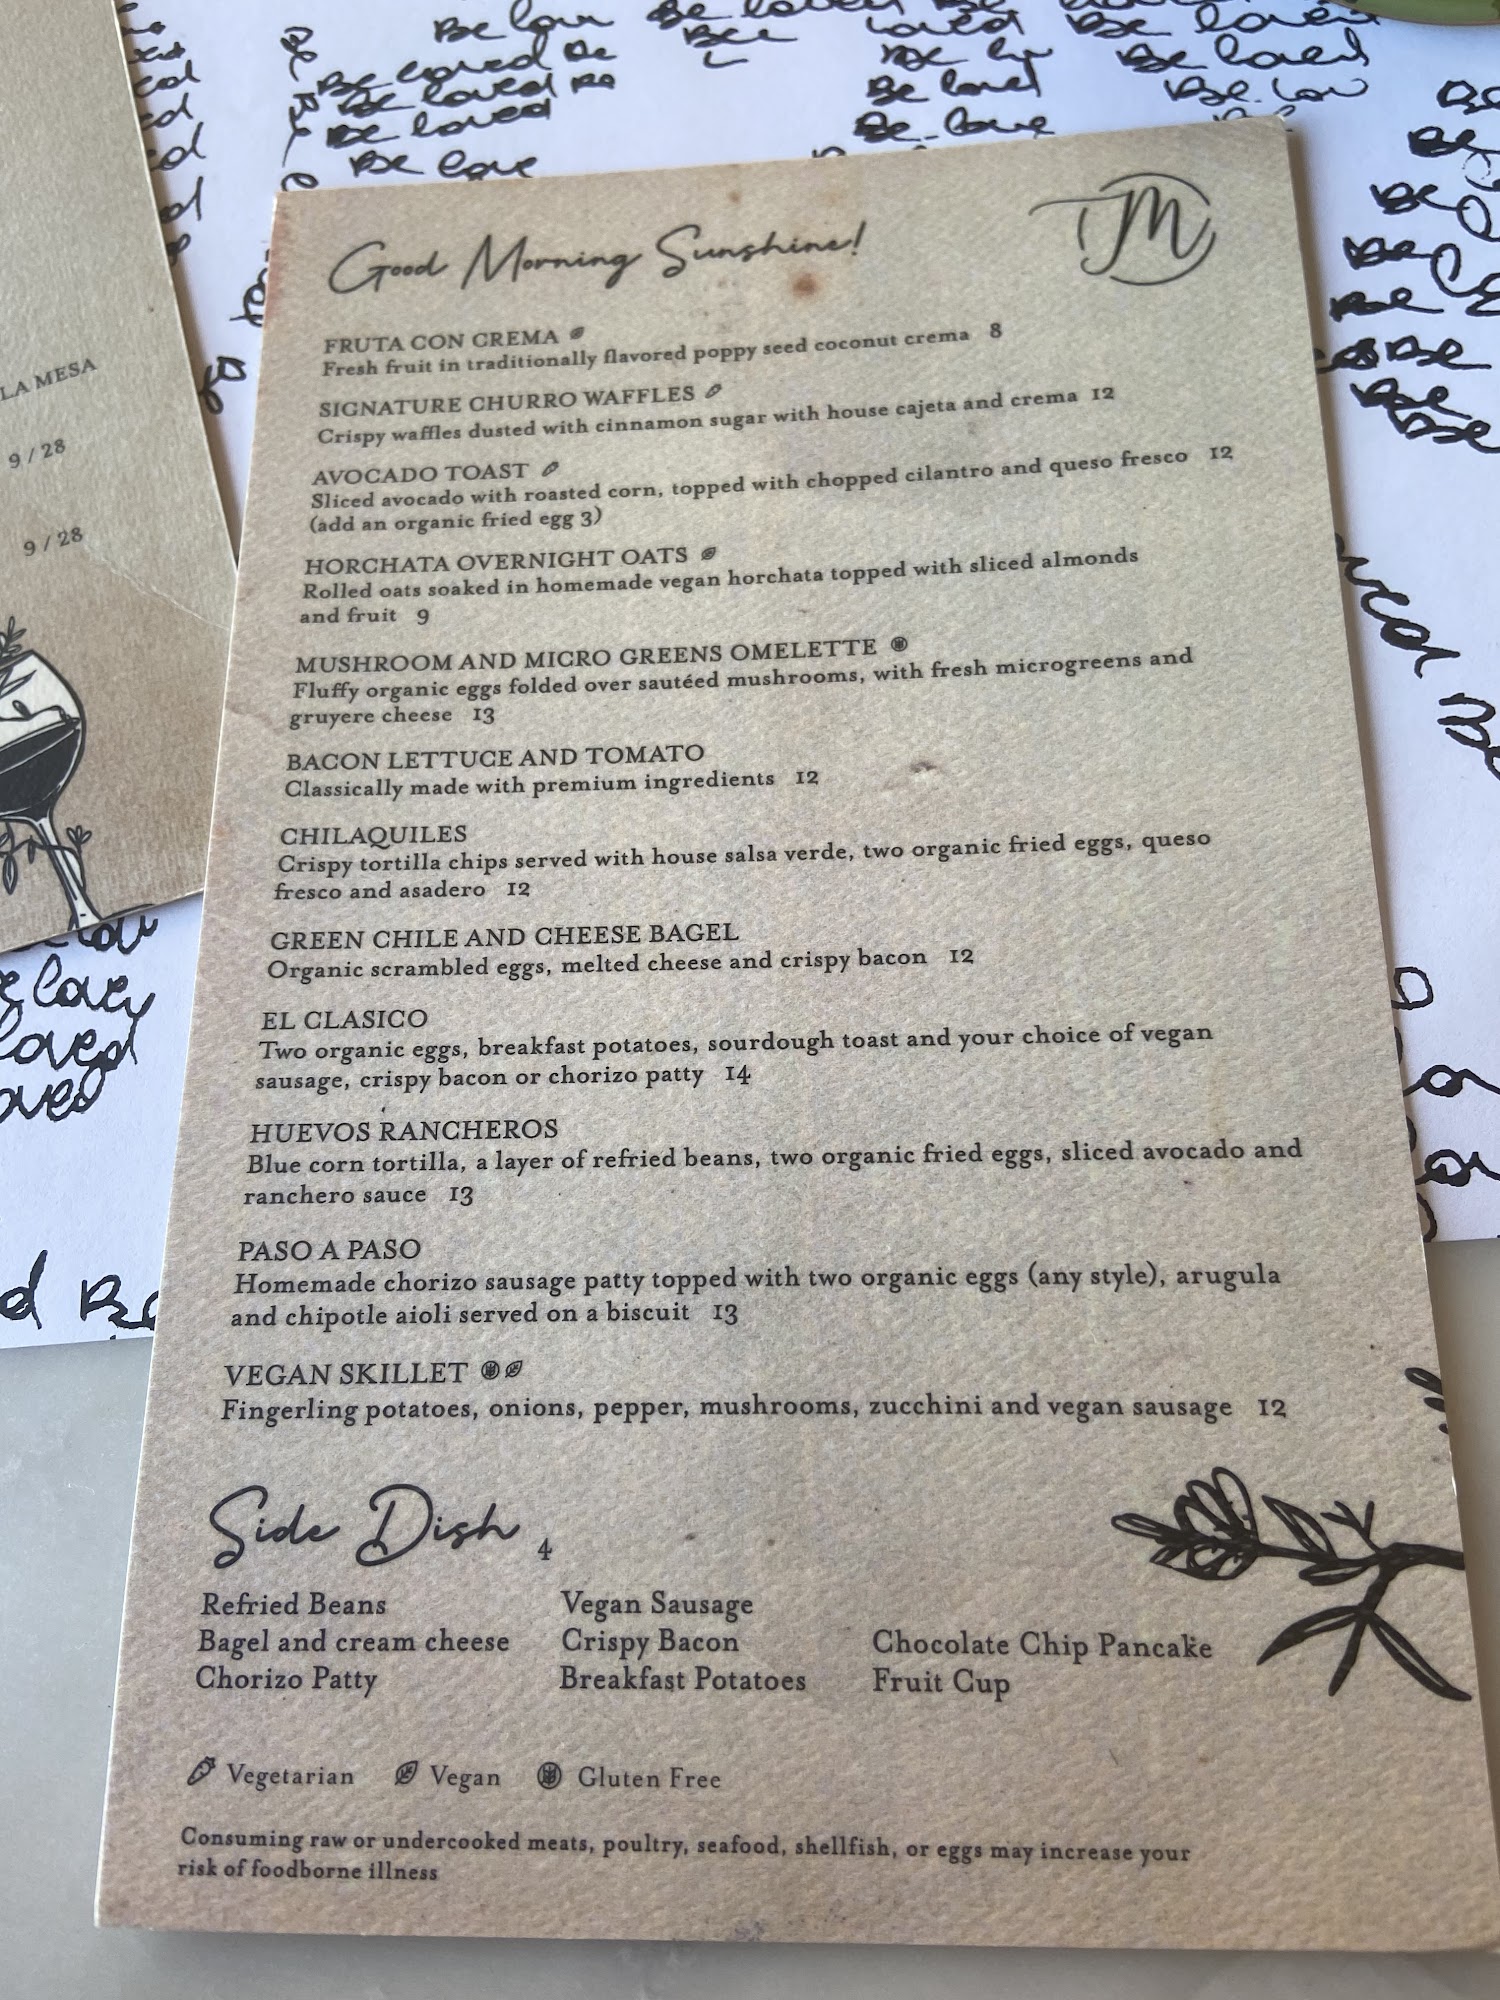 Good Morning Sunshine!
M
FRUTA CON CREMA
Fresh fruit in traditionally flavored poppy seed coconut crema 8
SIGNATURE CHURRO WAFFLES
Crispy waffles dusted with cinnamon sugar with house cajeta and crema 12
AVOCADO TOAST
Sliced avocado with roasted corn, topped with chopped cilantro and queso fresco 12
(add an organic fried egg 3)
HORCHATA OVERNIGHT OATS
Rolled oats soaked in homemade vegan horchata topped with sliced almonds
and fruit 9
MUSHROOM AND MICRO GREENS OMELETTE
Fluffy organic eggs folded over sautéed mushrooms, with fresh microgreens and
gruyere cheese 13
BACON LETTUCE AND TOMATO
Classically made with premium ingredients 12
CHILAQUILES
Crispy tortilla chips served with house salsa verde, two organic fried eggs, queso
fresco and asadero 12
GREEN CHILE AND CHEESE BAGEL
Organic scrambled eggs, melted cheese and crispy bacon 12
EL CLASICO
Two organic eggs, breakfast potatoes, sourdough toast and your choice of vegan
sausage, crispy bacon or chorizo patty 14
HUEVOS RANCHEROS
Blue corn tortilla, a layer of refried beans, two organic fried eggs, sliced avocado and
ranchero sauce 13
PASO A PASO
Homemade chorizo sausage patty topped with two organic eggs (any style), arugula
and chipotle aioli served on a biscuit 13
VEGAN SKILLET
Fingerling potatoes, onions, pepper, mushrooms, zucchini and vegan sausage 12
Side Dish 4
Refried Beans
Bagel and cream cheese
Chorizo Patty
Vegan Sausage
Crispy Bacon
Breakfast Potatoes
Chocolate Chip Pancake
Fruit Cup
Vegetarian Vegan Gluten Free
Consuming raw or undercooked meats, poultry, seafood, shellfish, or eggs may increase your
risk of foodborne illness
LA MESA
9 / 28
9 / 28
Be loved Be
Be loved
Be loved
Be love
Be loved
Be love